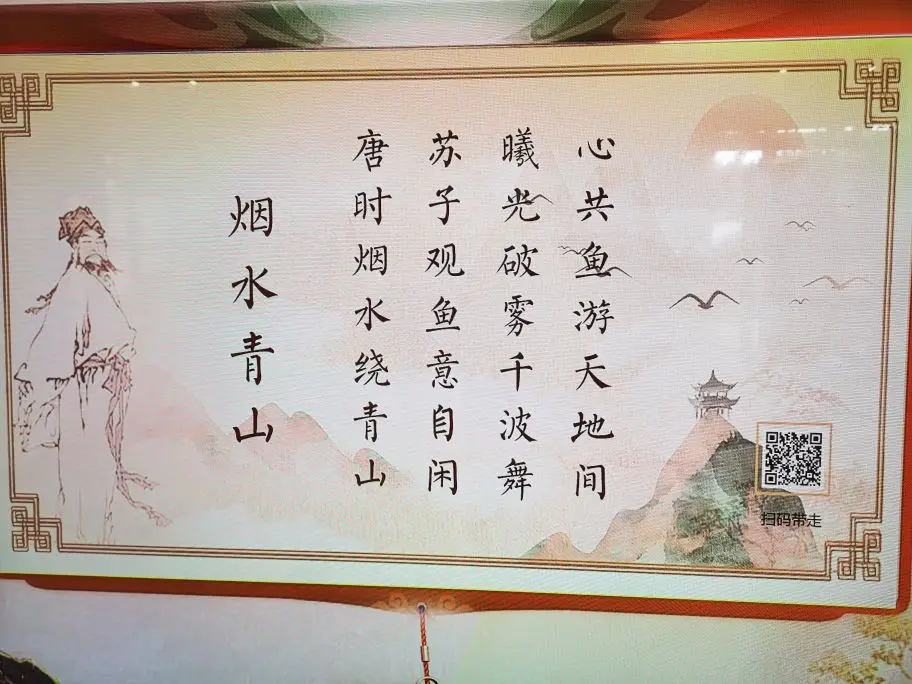 烟水青山
唐时烟水绕青山
苏子观鱼意自闲
曦光破雾千波舞
心共鱼游天地间
扫码带走